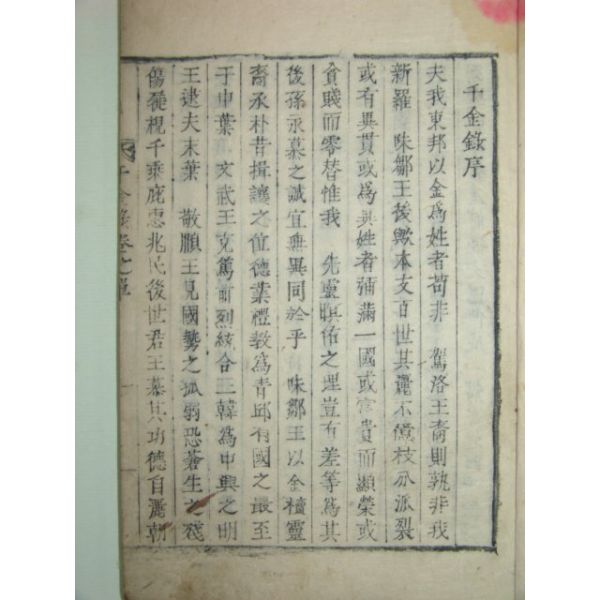 千金錄序
夫我東邦以金爲姓者苟非 駕洛王裔則孰非我
新羅 味鄒王後歟本支百世其麗不億枝分派裂
或有異貫或爲異姓者彌滿一國或富貴而顯榮或
貧賤而零替惟我 先靈暝佑之理豈有差等爲其
後孫永慕之誠宜無異同於乎 味鄒王以金櫝靈
裔承朴昔揖讓之位德業禮敎爲靑邱有國之最至
于中葉 文武王克篤前烈統合三韓爲中興之明
王逮夫末葉 敬順王見國勢之孤弱恐蒼生之殘
傷蹝視千乘庇惠兆民後世君王慕其功德自麗朝
千金錄卷之單